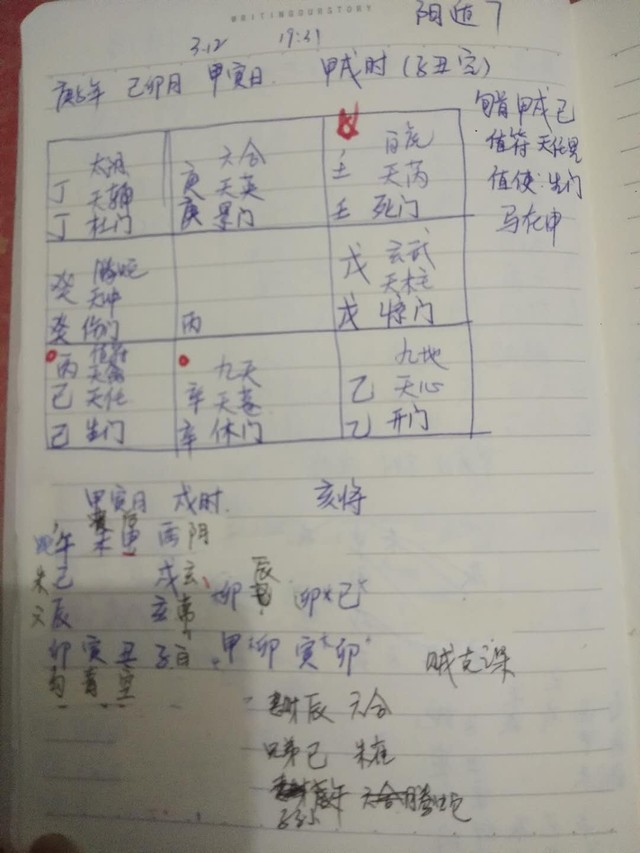 WRITINGOURSTORY
阳遁7
3.12 19:31
庚子年 己卯月 甲寅日 甲戌时(子丑空)
旬首甲戌己
值符 天任星
值使:生门
马在申
太阴 六合 白虎
丁 天辅 庚 天英 壬 天芮
丁 杜门 庚 景门 壬 死门
腾蛇 戊 玄武
癸 天冲 天柱
癸 伤门 丙 戊 惊门
丙 值符 九天 九地
天禽
己 天任 辛 天蓬 乙 天心
己 生门 辛 休门 乙 开门
甲寅日 戌时 亥将
午 未 申 酉 阴
朱 巳 戌 玄 卯 辰 卯 巳
六 辰 亥 常
卯 寅 丑 子 白 甲 卯 寅 卯 贼克课
勾 青 空
辰 六合
兄弟 巳 朱雀
午 腾蛇